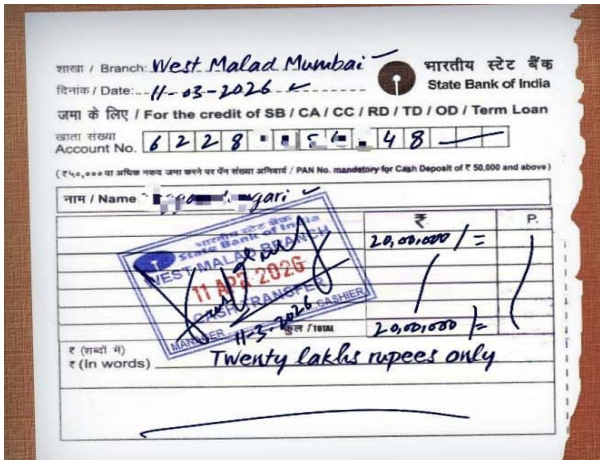 शाखा / Branch: West Malad Mumbai
भारतीय स्टेट बैंक
State Bank of India
दिनांक / Date: 11-03-2026
जमा के लिए / For the credit of SB / CA / CC / RD / TD / OD / Term Loan
खाता संख्या
Account No. 6 2 2 8 48
(₹५०,००० या अधिक नकद जमा करने पर पॅन संख्या अनिवार्य / PAN No. mandatory for Cash Deposit of ₹ 50,000 and above)
नाम / Name gari
₹ P.
20,00,000/=
भारतीय स्टेट बैंक
State Bank of India
WEST MALAD BRANCH
11 APR 2026
CASH TRANSFER
MANAGER CASHIER
11-3-2026
कुल / TOTAL 20,00,000/=
₹ (शब्दों में)
₹ (In words) Twenty lakhs rupees only